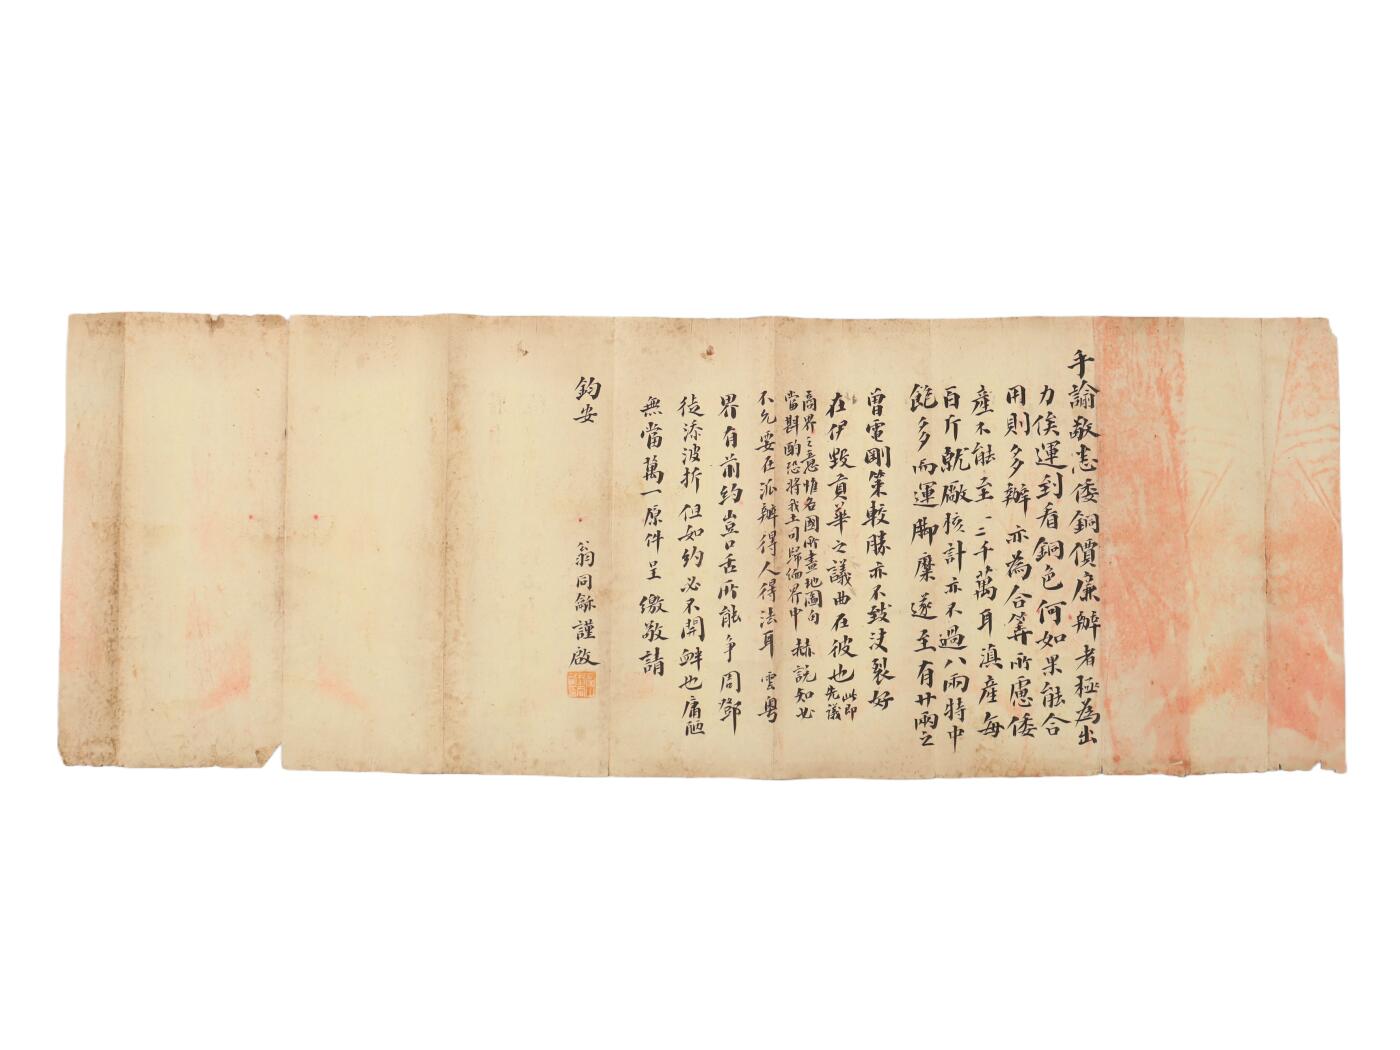 手諭敬悉倭銅價廉辦者極為出
力俟運到看銅色何如果能合
用則多辦亦為合算所慮倭
產不能至一二千萬耳滇產每
百斤就廠核計亦不過八兩特中
飽多而運腳糜遂至有廿兩之
曾電剛策較勝亦不致決裂好
在伊毀貢華之議曲在彼也此即先議
商界之意惟各國所畫地圖向
當斟酌恐將我土司歸緬界中 赫說知必
不允要在派辦得人得法耳 雲粵
界有前約豈口舌所能爭周鄧
徒添波折但如約必不開衅也庸陋
無當萬一原件呈繳敬請
鈞安
翁同龢謹啟